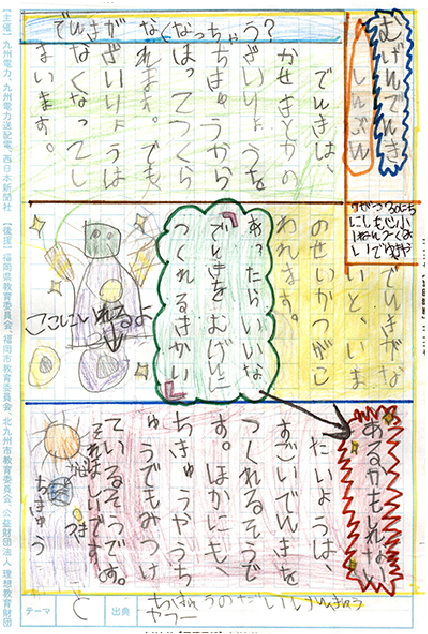 むげんでんき
しんぶん
でんきがなくなっちゃう?
でんきは、
かせきとかの
ざいりょうを
ちきゅうから
ほってつくら
れます。でも
ざいりょうは
なくなってし
まいます。
でんきがな
いと、いま
のせいかつがこ
われます。
「あったらいいな、
でんきをむげんに
つくれるきかい」
ここにいれるよ
あるかもしれない
たいようは、
すごいでんきを
つくれるそうで
す。ほかにも、
ちきゅうやうち
ゅうでもみつけ
ているそうです。
つき
ちきゅう
テーマ
出典
【主催】九州電力、九州電力送配電、西日本新聞社 【後援】福岡県教育委員会、福岡市教育委員会、北九州市教育委員会、公益財団法人 理想教育財団